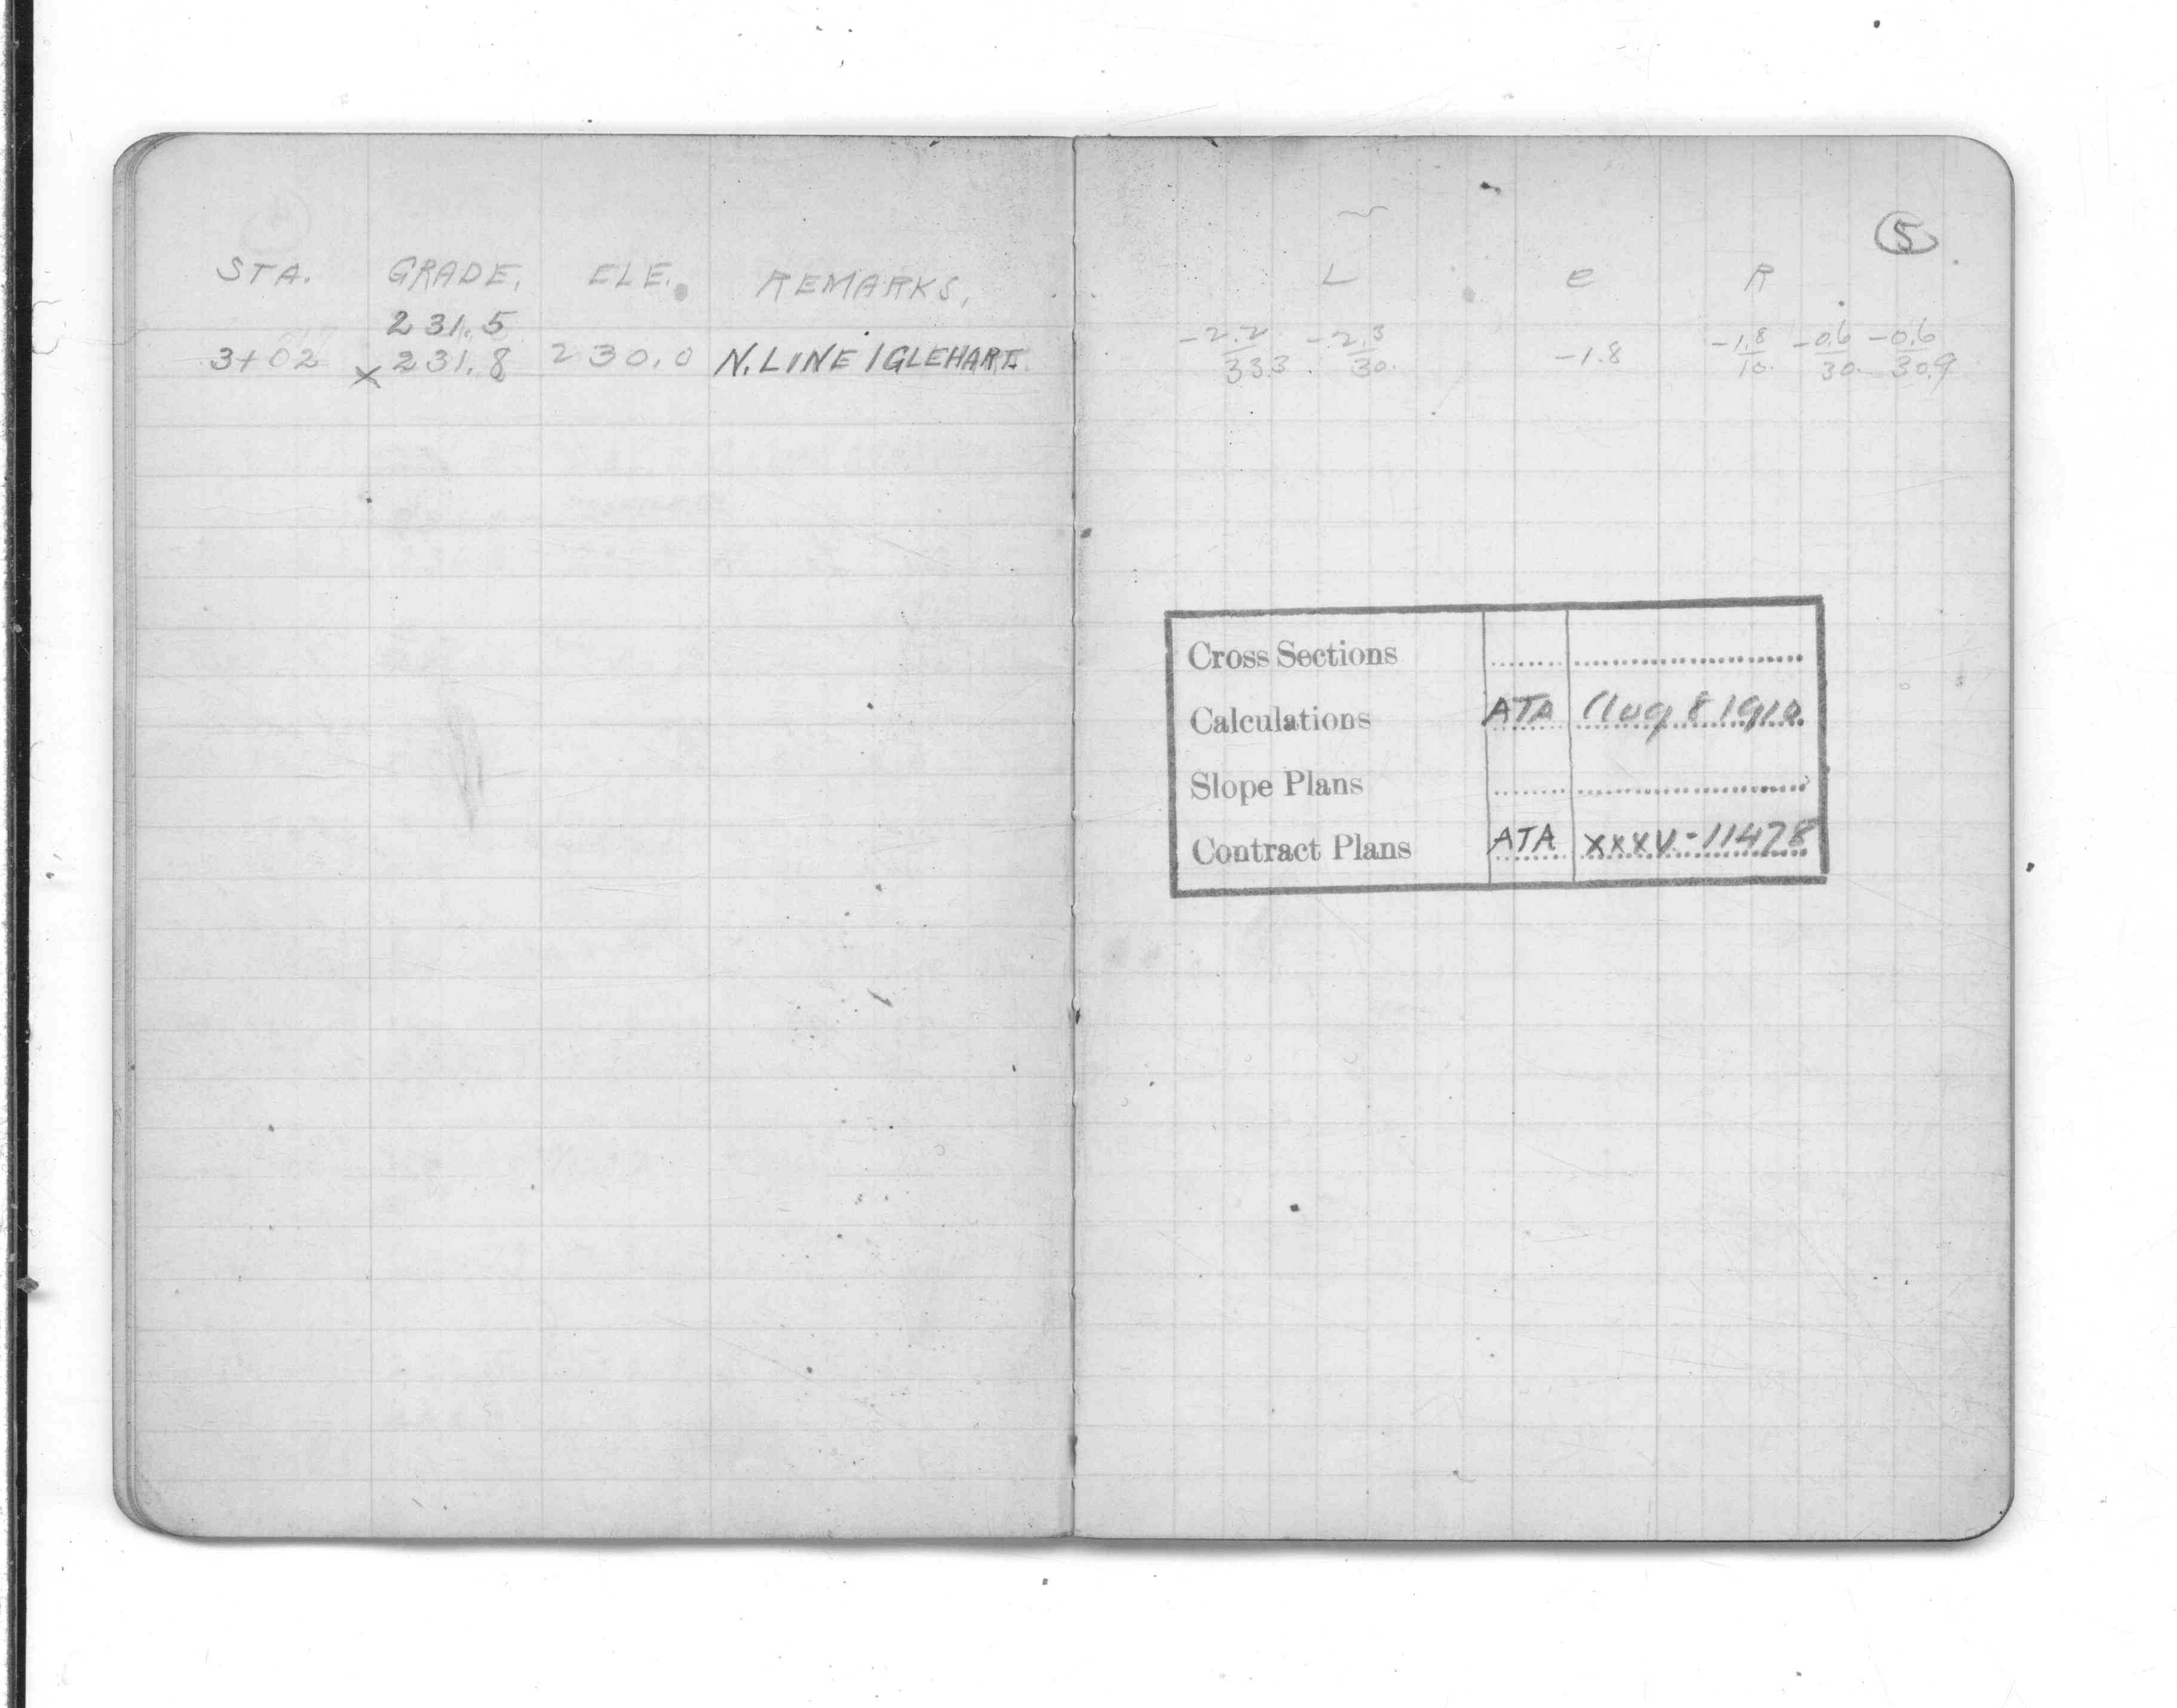 STA. GRADE, ELE. REMARKS,
231.5
3+02 x 231.8 230.0 N. LINE IGLEHART.
5
L e R
-2.2 -2.3 -1.8 -0.6 -0.6
33.3 30. -1.8 10. 30. 30.9
Cross Sections
Calculations ATA Aug 8 1910
Slope Plans
Contract Plans ATA xxxv-11478